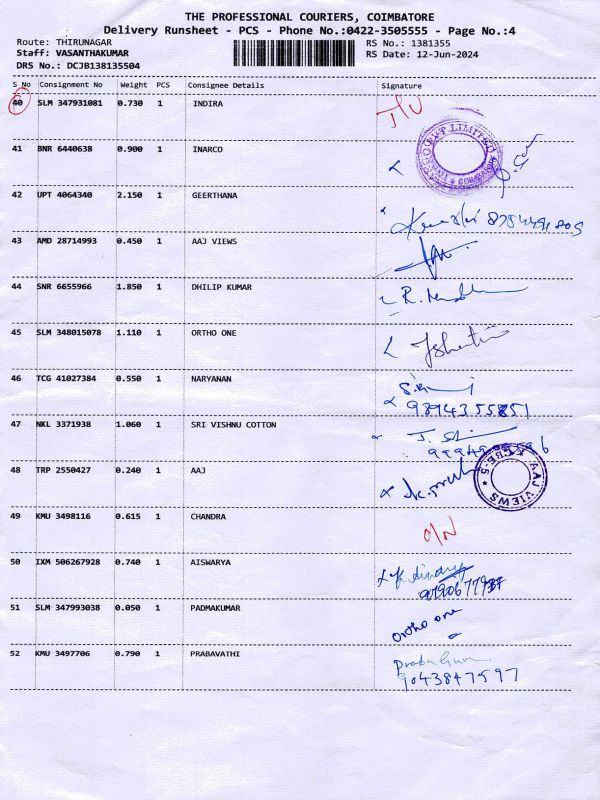 THE PROFESSIONAL COURIERS, COIMBATORE
Delivery Runsheet - PCS - Phone No.:0422-3505555 - Page No.:4
Route: THIRUNAGAR RS No.: 1381355
Staff: VASANTHAKUMAR RS Date: 12-Jun-2024
DRS No.: DCJB138135504
S No Consignment No Weight PCS Consignee Details Signature
40 SLM 347931081 0.730 1 INDIRA
41 BNR 6440638 0.900 1 INARCO
42 UPT 4064340 2.150 1 GEERTHANA
43 AMD 28714993 0.450 1 AAJ VIEWS
44 SNR 6655966 1.850 1 DHILIP KUMAR
45 SLM 348015078 1.110 1 ORTHO ONE
46 TCG 41027384 0.550 1 NARYANAN
9894355851
47 NKL 3371938 1.060 1 SRI VISHNU COTTON
48 TRP 2550427 0.240 1 AAJ
AAJ VIEWS CBE-5
49 KMU 3498116 0.615 1 CHANDRA
50 IXM 506267928 0.740 1 AISWARYA
51 SLM 347993038 0.050 1 PADMAKUMAR Ortho one
52 KMU 3497706 0.790 1 PRABAVATHI
9043847597